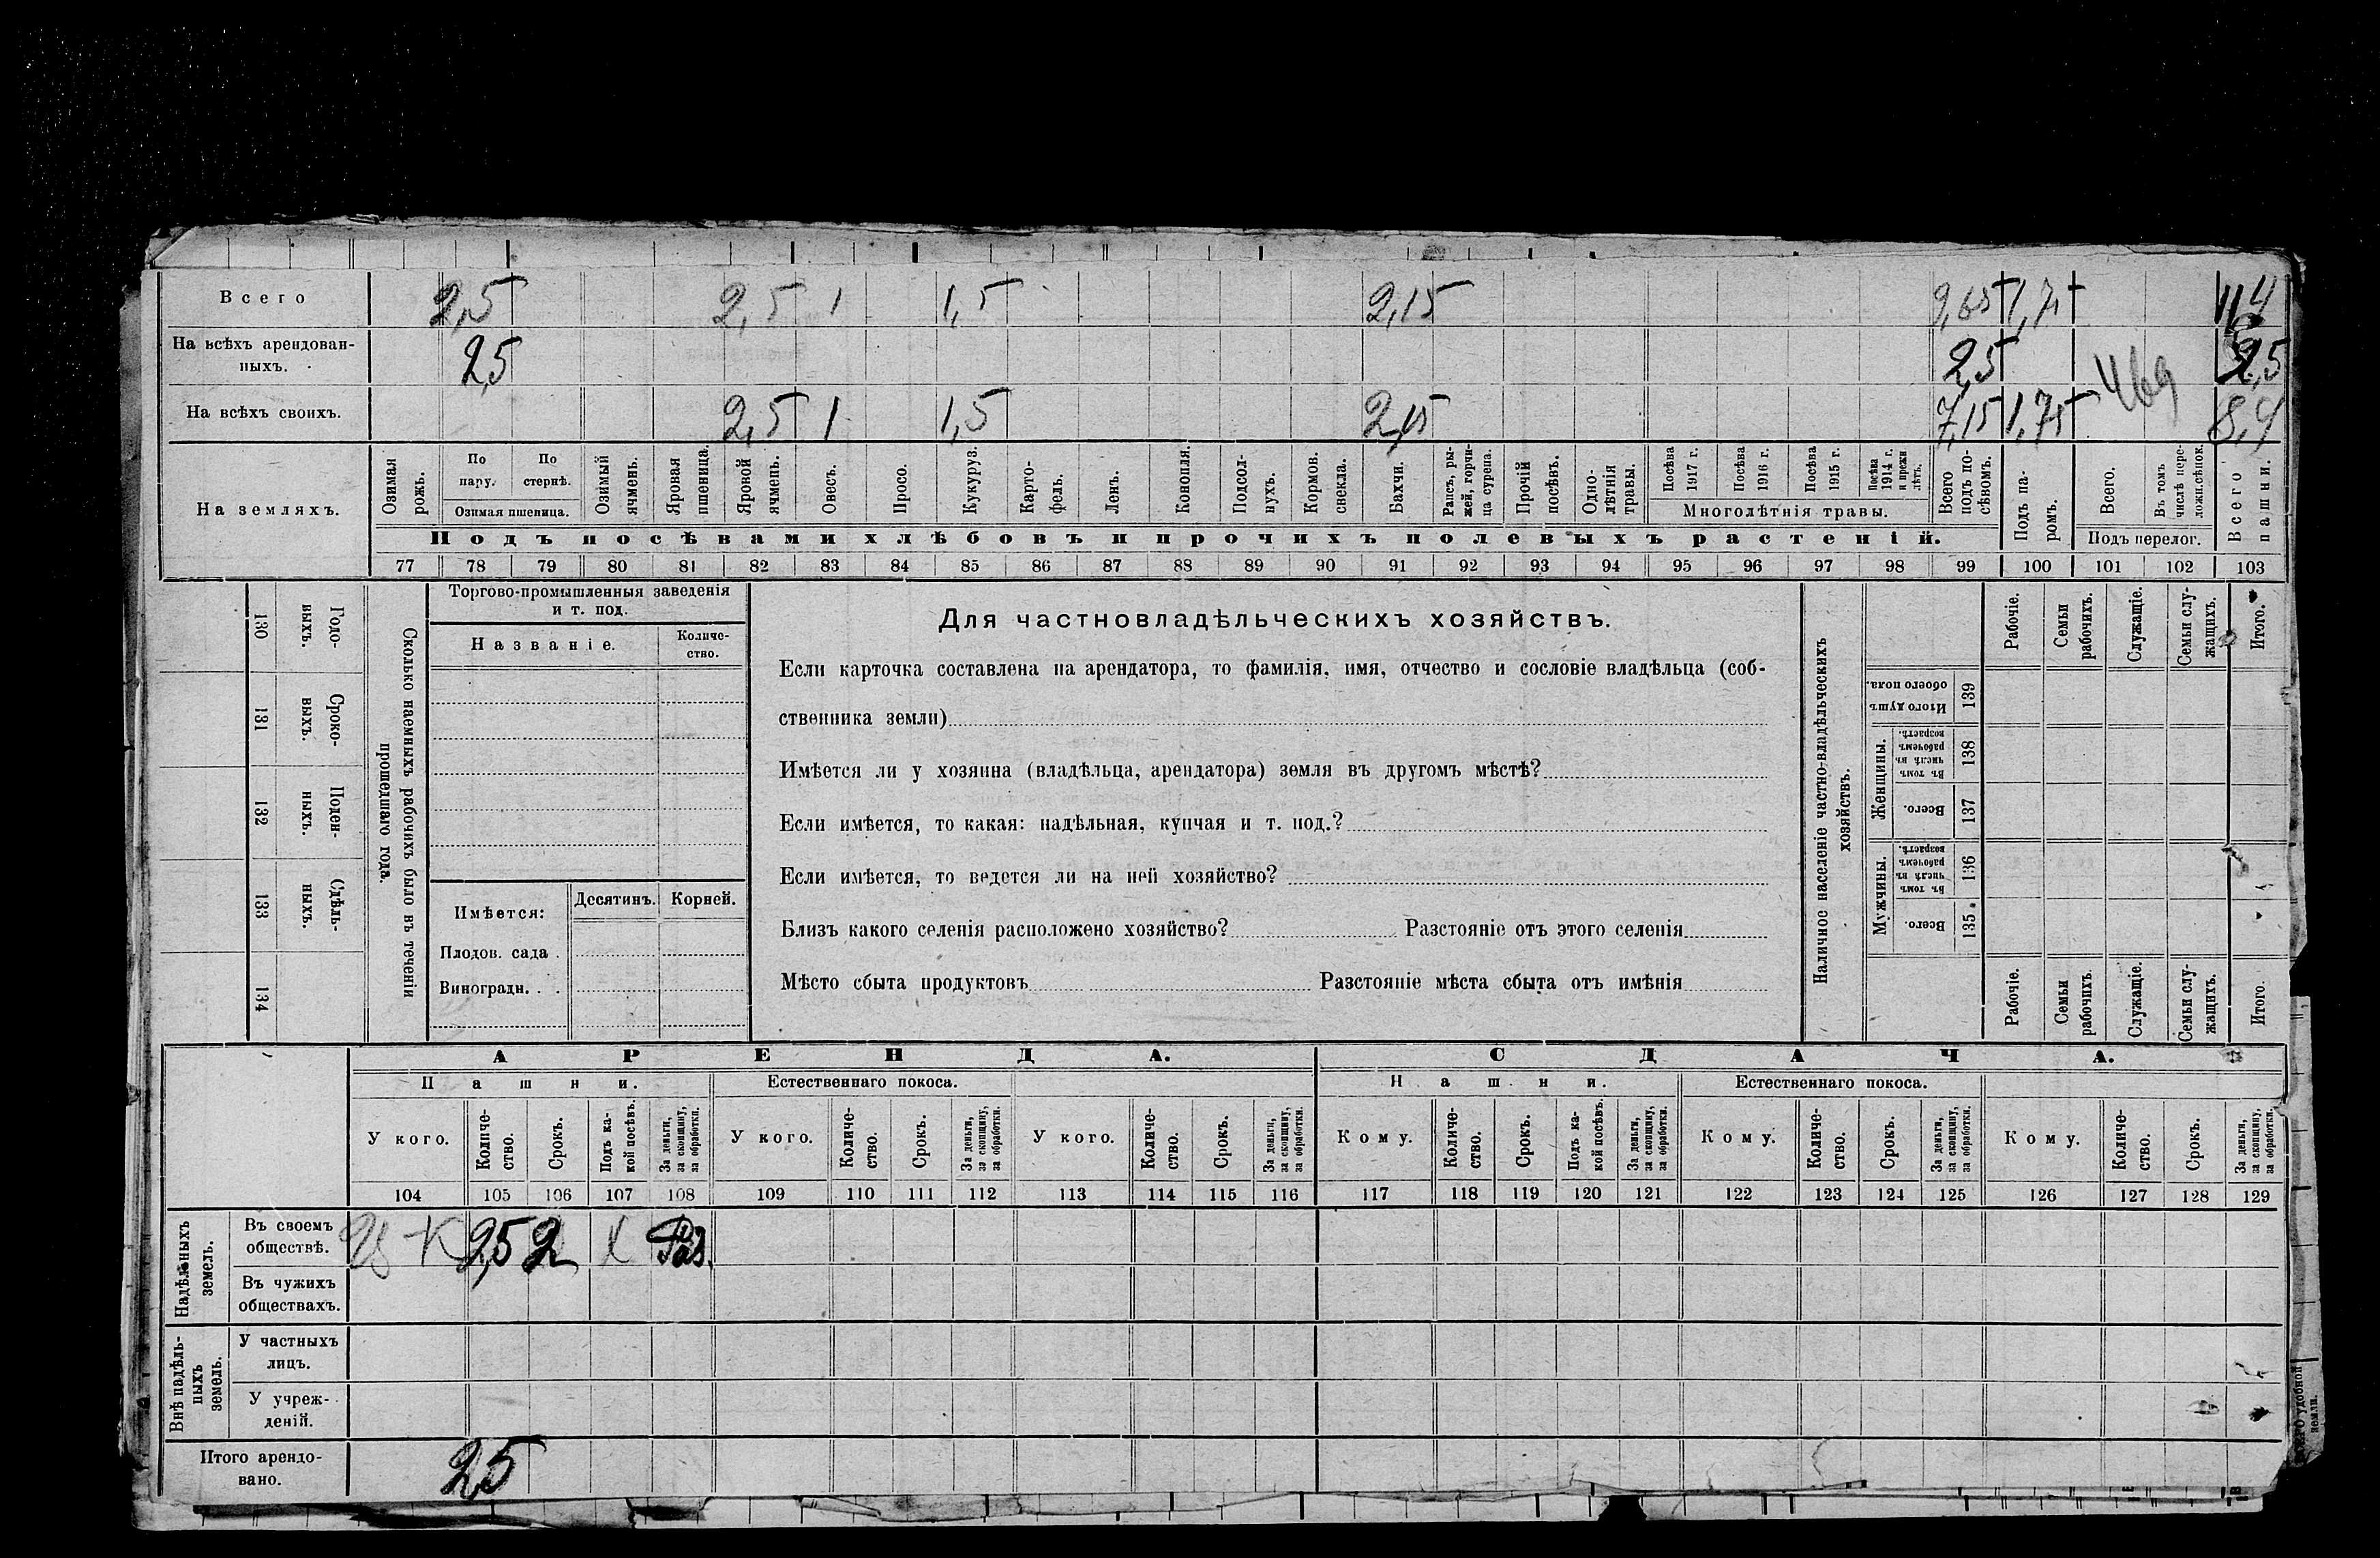 Всего 2,5 2,5 1 1,5 2,15 9,65 1,75 11,4
На всѣхъ арендован-
ныхъ. 2,5 2,5 2,5
На всѣхъ своихъ. 2,5 1 1,5 2,15 7,15 1,75
На земляхъ.
Озимая рожь.
По пару.
По стернѣ.
Озимая пшеница.
Озимый ячмень.
Яровая пшеница.
Яровой ячмень.
Овесъ.
Просо.
Кукуруз.
Карто-
фель.
Ленъ.
Конопля.
Подсол-
нухъ.
Кормов. свекла.
Бахчи.
Рапсъ, ры-
жей, горчи-
ца сурепа.
Прочій посѣвъ.
Одно-
лѣтнія травы.
Посѣва 1917 г.
Посѣва 1916 г.
Посѣва 1915 г.
Посѣва 1914 г. и прежн лѣтъ.
Многолѣтнія травы.
Всего подъ по-
сѣвомъ.
Подъ па-
ромъ.
Всего.
Въ томъ числѣ пере-
ложн.сѣнок.
Подъ перелог.
Всего пашни.
Подъ посѣвами хлѣбовъ и прочихъ полевыхъ растеній.
77 78 79 80 81 82 83 84 85 86 87 88 89 90 91 92 93 94 95 96 97 98 99 100 101 102 103
130 Годо-
выхъ.
131 Сроко-
выхъ.
132 Поден-
ныхъ.
133 Сдѣль-
ныхъ.
134
Сколько наемныхъ рабочихъ было въ теченіи
прошедшаго года.
Торгово-промышленныя заведенія
и т. под.
Названіе.
Количе-
ство.
Имѣется:
Десятинъ.
Корней.
Плодов. сада .
Виноградн. . .
Для частновладѣльческихъ хозяйствъ.
Если карточка составлена на арендатора, то фамилія, имя, отчество и сословіе владѣльца (соб-
ственника земли)
Имѣется ли у хозяина (владѣльца, арендатора) земля въ другомъ мѣстѣ?
Если имѣется, то какая: надѣльная, купчая и т. под.?
Если имѣется, то ведется ли на ней хозяйство?
Близъ какого селенія расположено хозяйство? Разстояніе отъ этого селенія
Мѣсто сбыта продуктовъ Разстояніе мѣста сбыта отъ имѣнія
Наличное населеніе частно-владѣльческихъ
хозяйствъ.
Рабочіе.
Семьи рабочихъ.
Служащіе.
Семьи слу-
жащихъ.
Итого.
Итого душъ обоего пола. 139
Женщины.
Въ томъ числѣ въ рабочемъ возрастѣ. 138
Всего. 137
Мужчины.
Въ томъ числѣ въ рабочемъ возрастѣ. 136
Всего. 135
Рабочіе.
Семьи рабочихъ.
Служащіе.
Семьи слу-
жащихъ.
Итого.
АРЕНДА. СДАЧА.
Пашни. Естественнаго покоса. Пашни. Естественнаго покоса.
У кого.
Количе-
ство.
Срокъ.
Подъ ка-
кой посѣвъ.
За деньги,
за скопщину,
за обработки.
У кого.
Количе-
ство.
Срокъ.
За деньги,
за скопщину,
за обработки.
У кого.
Количе-
ство.
Срокъ.
За деньги,
за скопщину,
за обработки.
Кому.
Количе-
ство.
Срокъ.
Подъ ка-
кой посѣвъ.
За деньги,
за скопщину,
за обработки.
Кому.
Количе-
ство.
Срокъ.
За деньги,
за скопщину,
за обработки.
Кому.
Количе-
ство.
Срокъ.
За деньги,
за скопщину,
за обработки.
104 105 106 107 108 109 110 111 112 113 114 115 116 117 118 119 120 121 122 123 124 125 126 127 128 129
Надѣльныхъ
земель.
Въ своемъ
обществѣ. 2,5 2
Въ чужихъ
обществахъ.
Внѣ надѣль-
ныхъ
земель.
У частныхъ
лицъ.
У учреж-
деній.
Итого арендо-
вано. 2,5